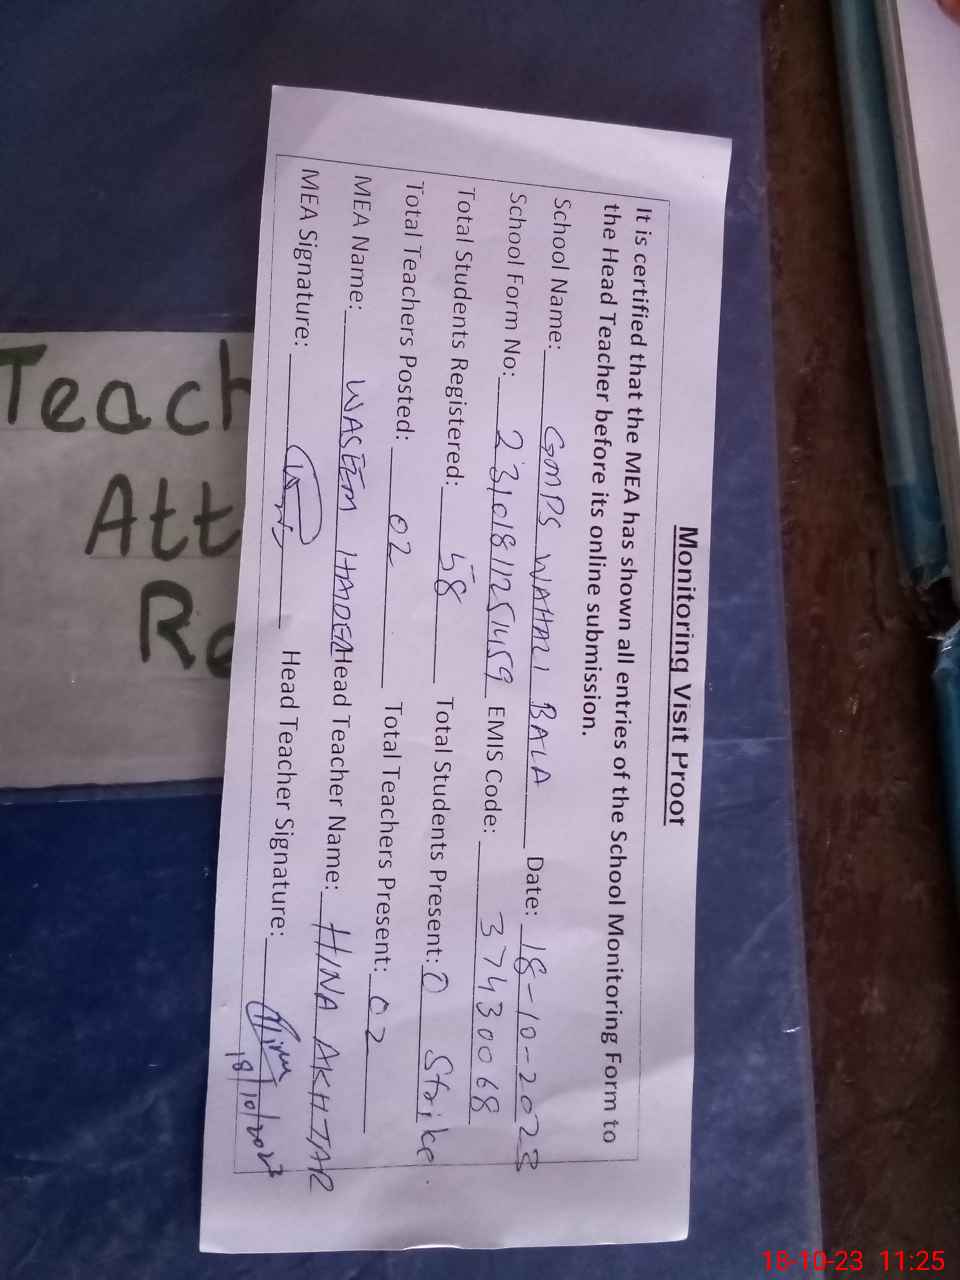 Monitoring Visit Proof
It is certified that the MEA has shown all entries of the School Monitoring Form to
the Head Teacher before its online submission.
School Name: GMPS WAHALI BALA Date: 18-10-2023
School Form No: 23101811251459 EMIS Code: 37430068
Total Students Registered: 58 Total Students Present: 0 Strike
Total Teachers Posted: 02 Total Teachers Present: 02
MEA Name: WASEEM HAIDER Head Teacher Name: HINA AKHTAR
MEA Signature: Head Teacher Signature:
18/10/2023
Teach
Att
Re
18-10-23 11:25